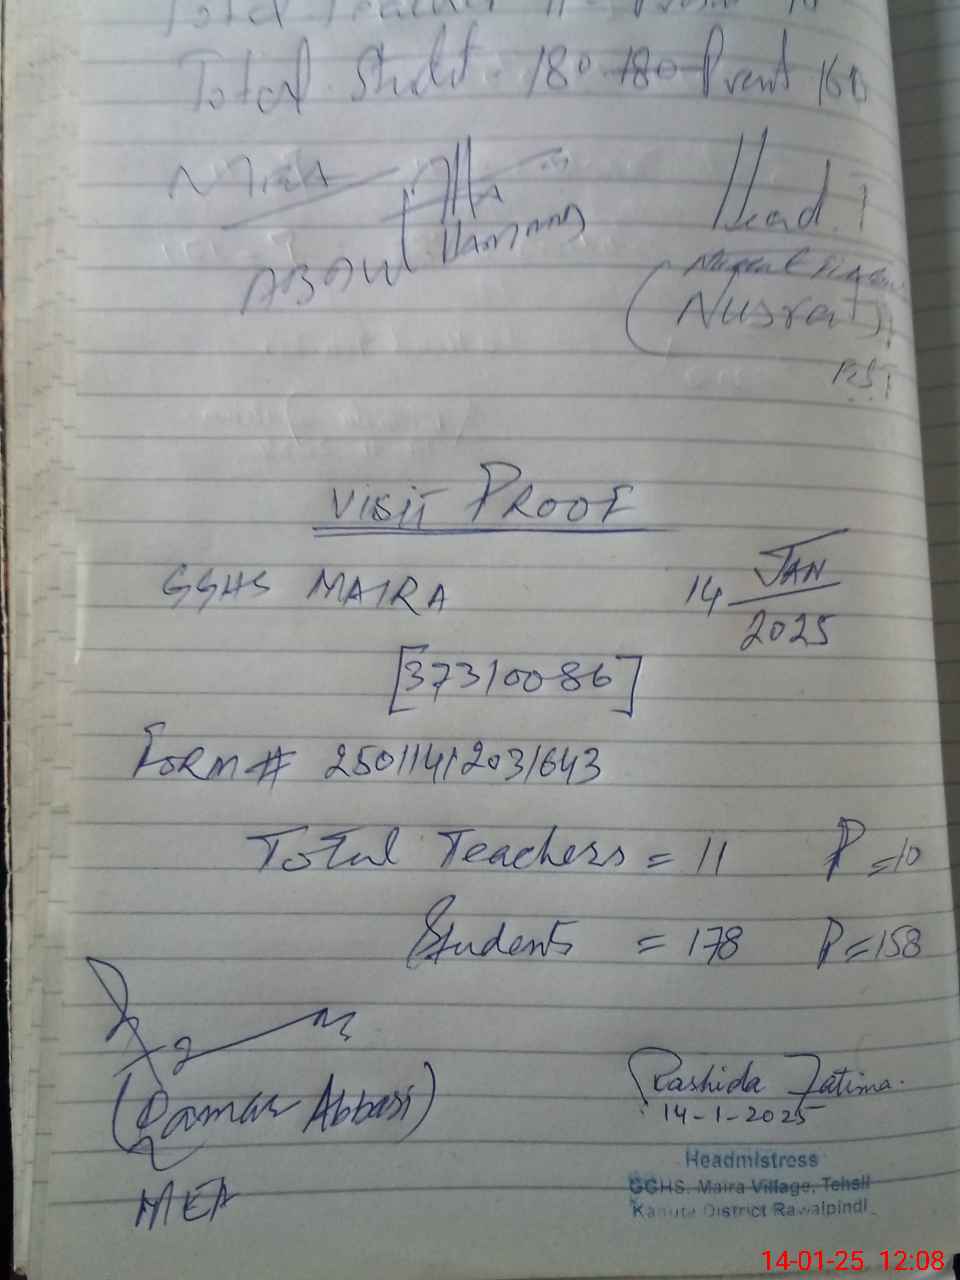 Total Studt. 180 180 Prsent 160
Abdul Hannan
Head.T
(Nusrat)
VISIT PROOF
GGHS MAIRA 14 JAN 2025
[37310086]
FORM # 25011412031643
Total Teachers = 11 P = 10
Students = 178 P = 158
(Qamar Abbasi)
MEA
Rashida Fatima.
14-1-2025
Headmistress
GGHS. Maira Village, Tehsil
District Rawalpindi
14-01-25 12:08